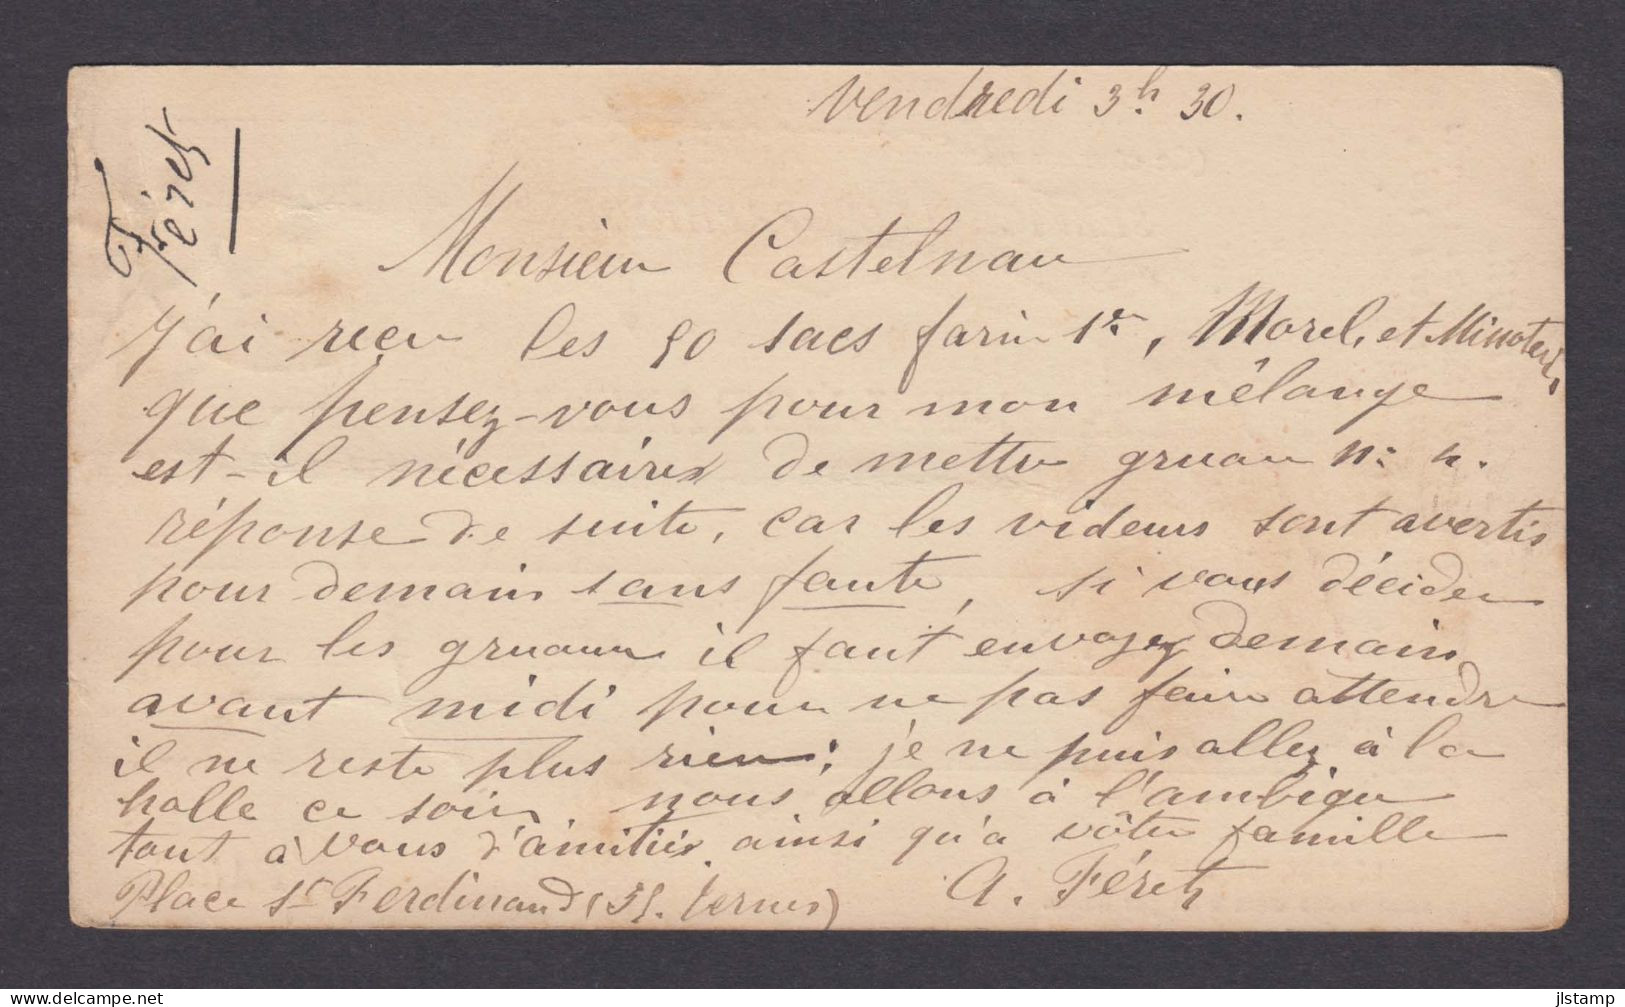 Vendredi 3h 30.
Féret
Monsieur Castelnau
J'ai recu les 50 sacs farin 1re, Morel, et Minoterie,
que pensez-vous pour mon mélange
est-il nécessaire de mettre gruau n: 4.
réponse de suite, car les videurs sont avertis
pour demain sans faute, si vous décidez
pour les gruaux il faut envoyez demain
avant midi pour ne pas faire attendre
il ne reste plus rien; je ne puis allez à la
halle ce soir nous allons à l'ambigu
tout à vous d'amitiés ainsi qu'a vôtre famille
A. Féret
Place St Ferdinand (35. Ternes)
jlstamp